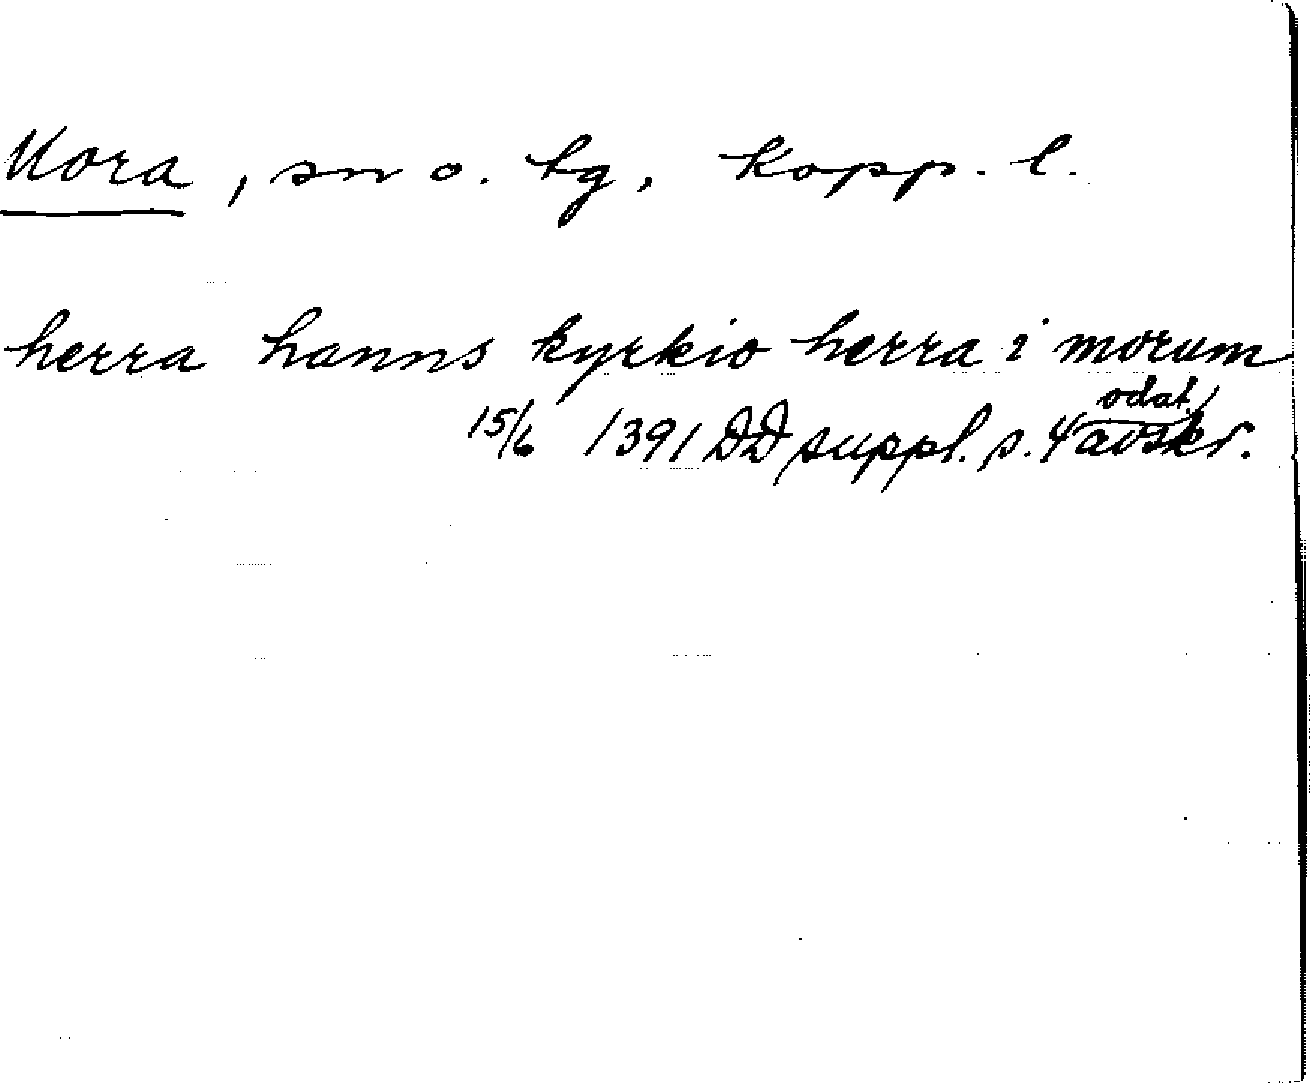 Mora, sn o. tg, Kopp. l.
herra hanns kyrkio herra i morum
15/6 1391 DD suppl. s. 4 odat. avskr.